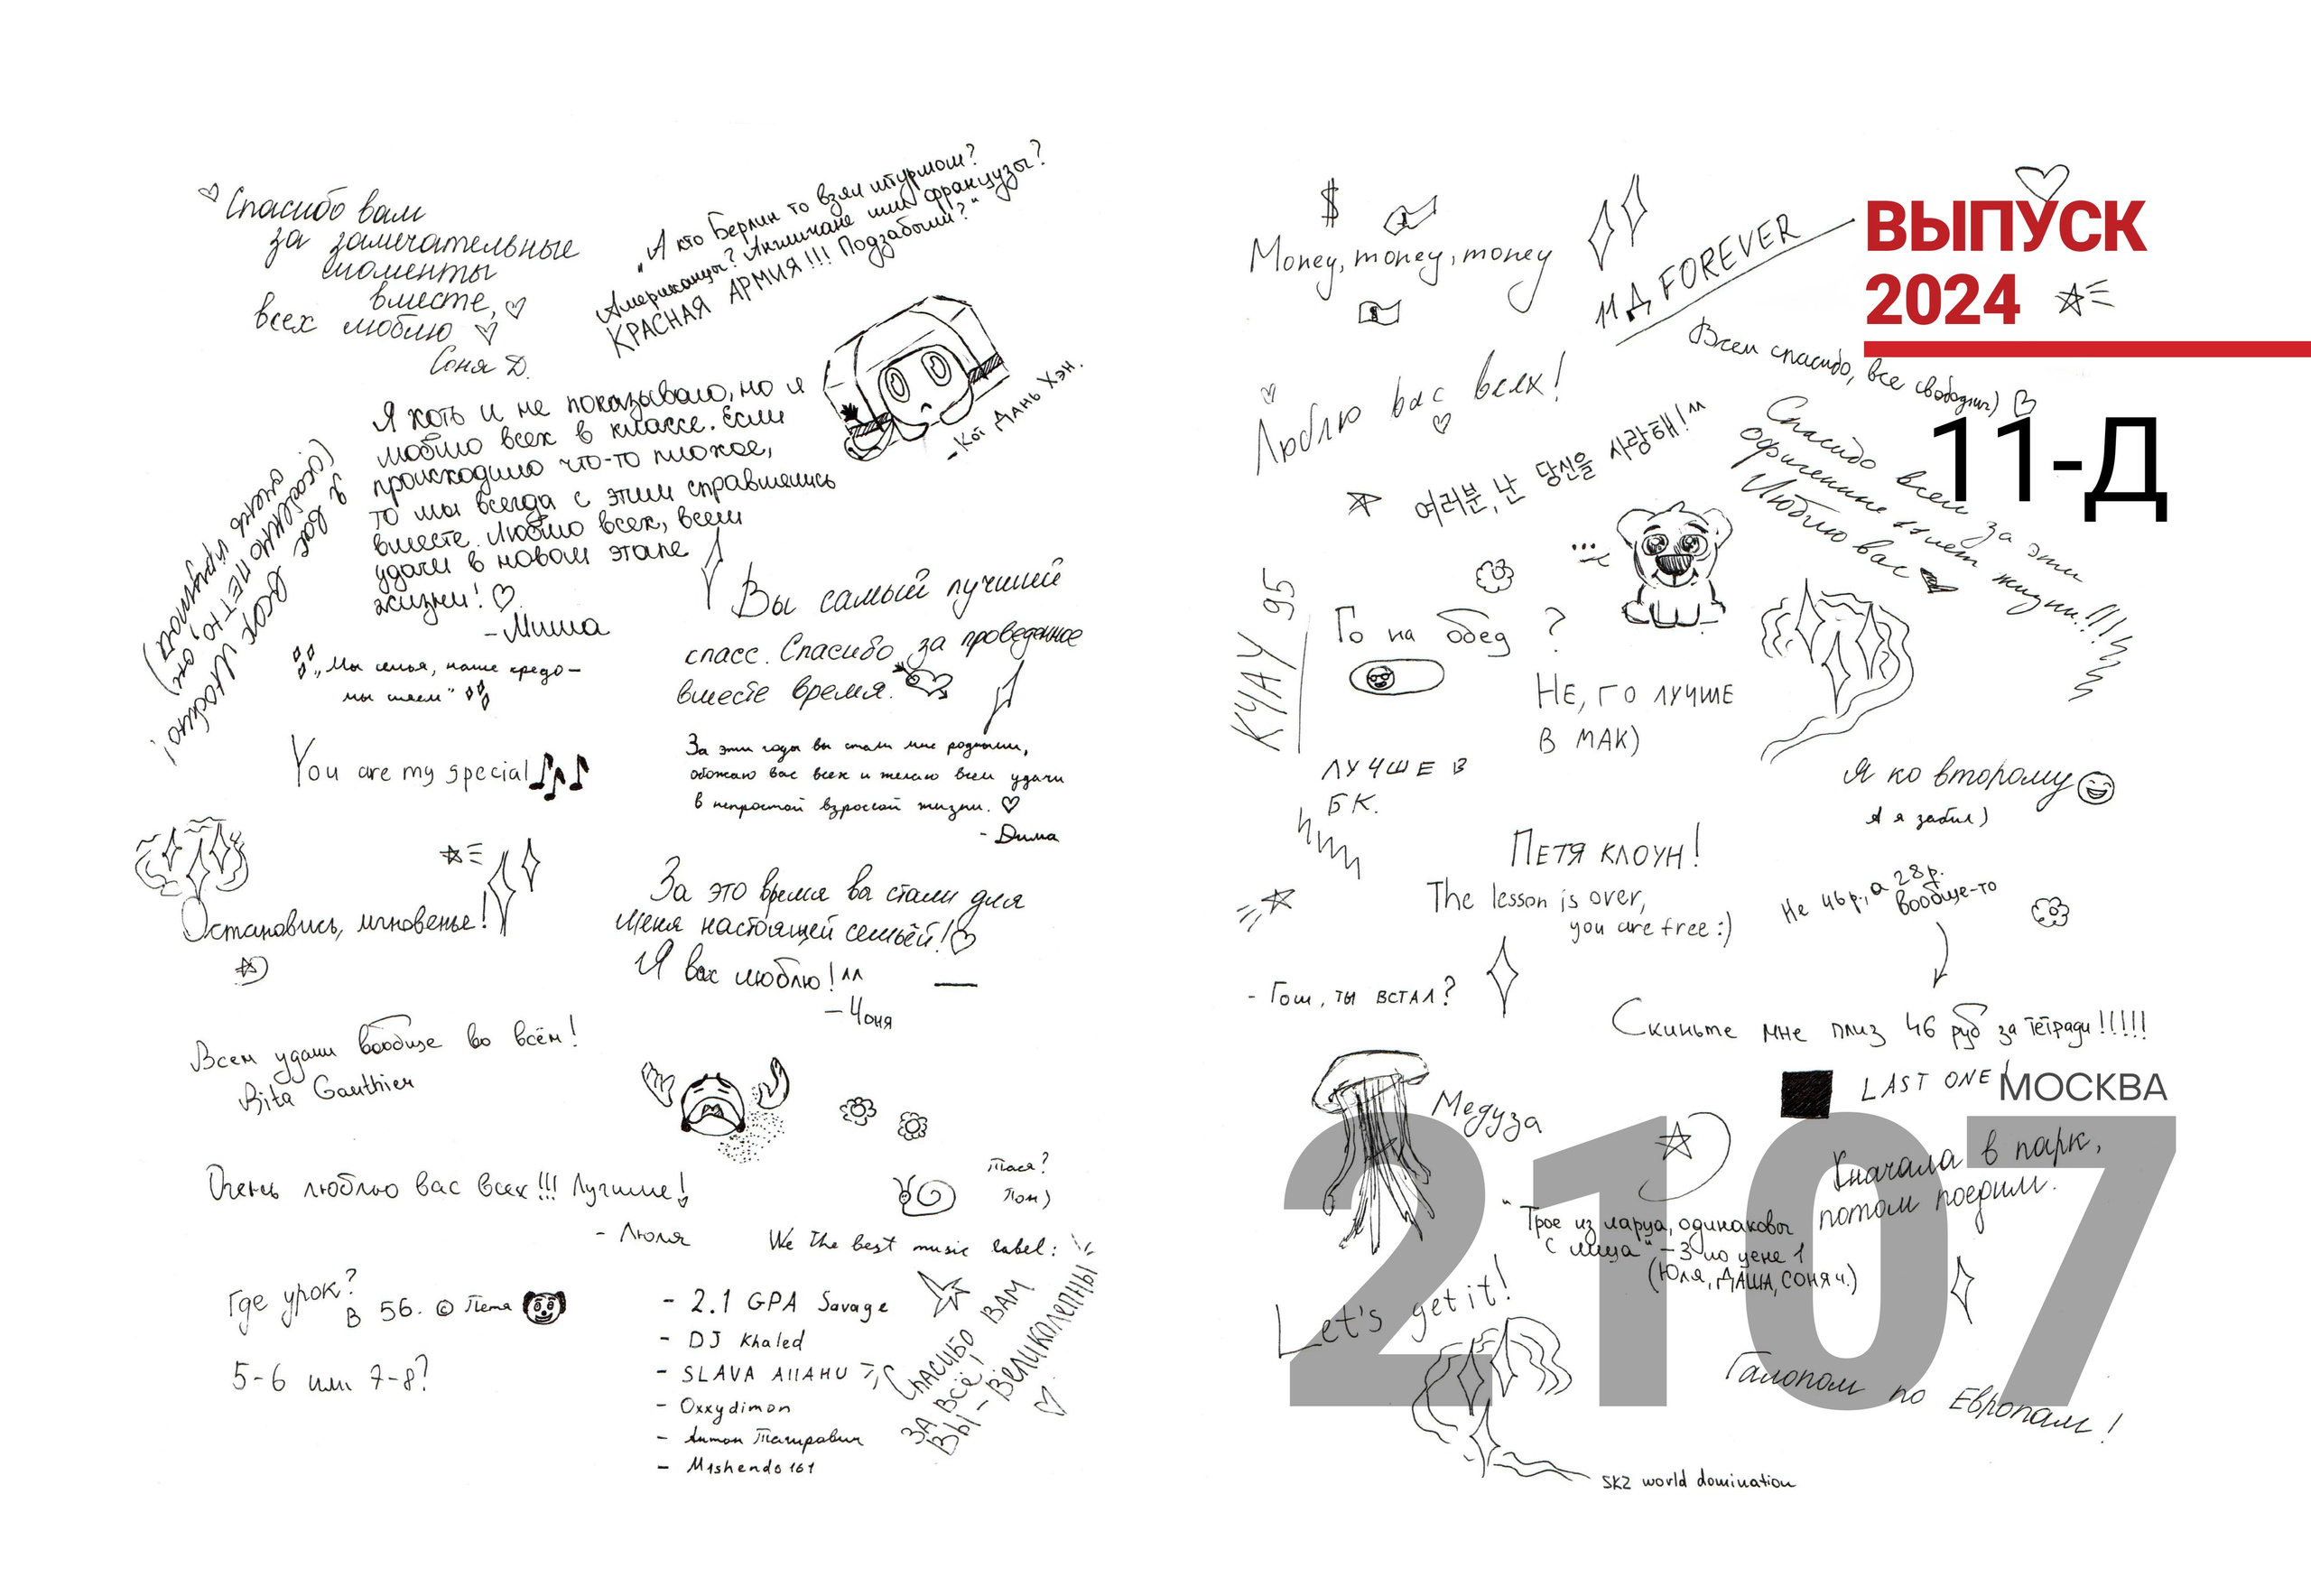 Спасибо вам
за замечательные
моменты
вместе,
всех люблю
Соня Д.
„А кто Берлин то взял штурмом?
Американцы? Англичане или французы?
КРАСНАЯ АРМИЯ!!! Подзабыли?“
- Кот Дань Хэн.
Я хоть и не показываю, но я
люблю всех в классе. Если
происходило что-то плохое,
то мы всегда с этим справлялись
вместе. Люблю всех, всем
удачи в новом этапе
жизни!
- Миша
Я вас всех люблю!
(особенно Петю, он
очень крутой)
„Мы семья, наше кредо -
мы сияем“
Вы самый лучший
класс. Спасибо за проведенное
вместе время.
You are my special
За эти годы вы стали мне родными,
обожаю вас всех и желаю всем удачи
в непростой взрослой жизни.
- Дима
Остановись, мгновенье!
За это время вы стали для
меня настоящей семьёй!
Я вас люблю! ^^
- Чоня
Всем удачи вообще во всём!
Rita Gauthier
Очень люблю вас всех!!! Лучшие!
- Люля
Тася?
Пон)
Где урок?
В 56. © Петя
5-6 или 7-8?
We the best music label:
- 2.1 GPA Savage
- DJ Khaled
- SLAVA
- Oxxydimon
- Антон Тагирович
- M1shendo161
Спасибо вам
за всё!
Вы - великолепны
$
Money, money, money
11 Д FOREVER
ВЫПУСК
2024
Всем спасибо, все свободны)
11-Д
Люблю вас всех!
여러분, 난 당신을 사랑해! ^^
Спасибо всем за эти
офигенные 11 лет жизни!!!
Люблю вас
КЧАУ 95
...
Го на обед ?
Не, го лучше
в мак)
Лучше в
БК.
Я ко второму
А я забил)
Петя клоун!
The lesson is over,
you are free :)
Не 46 р., а 28 р.
вообще-то
- Гош, ты встал?
Скиньте мне плиз 46 руб за тетради!!!!!
LAST ONE!
МОСКВА
2107
Медуза
Сначала в парк,
потом поедим.
"Трое из ларца, одинаковы
с лица" - 3 по цене 1
(Юля, Даша, Соня Ч.)
Let's get it!
Галопом по Европам!
SKZ world domination